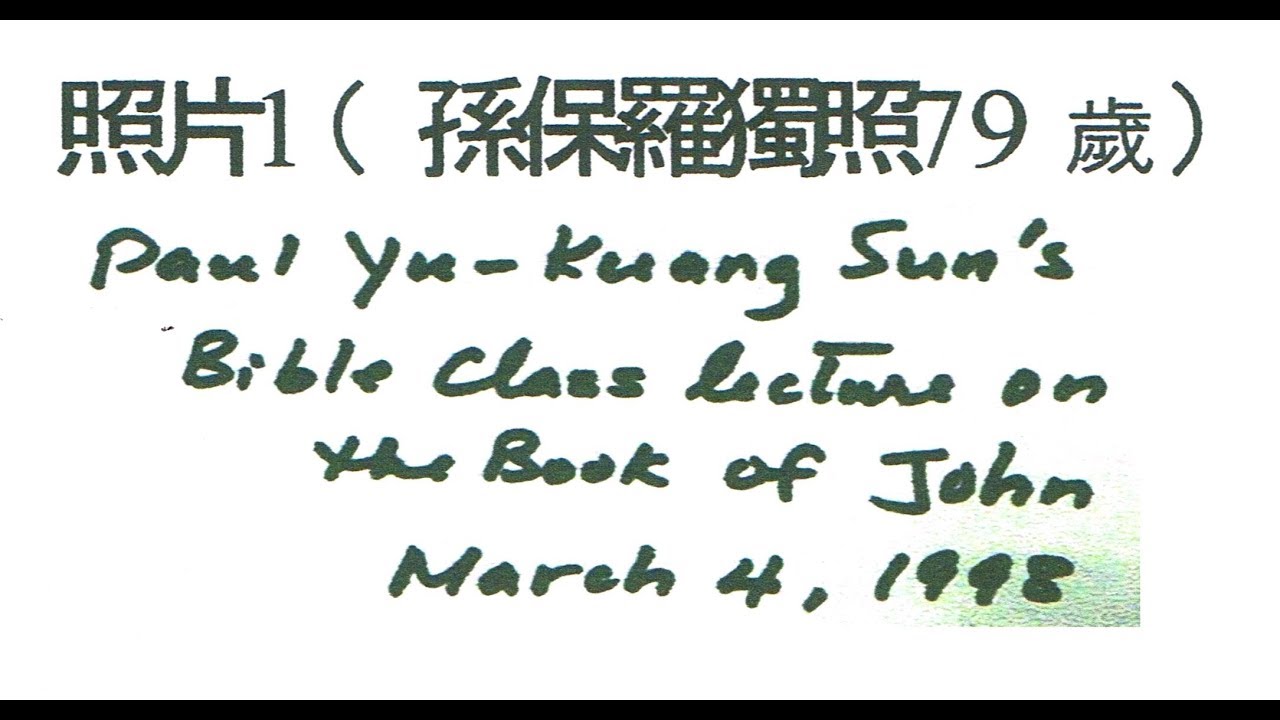 照片1（ 孫保羅獨照79 歲）
Paul Yu-Kuang Sun's
Bible Class lecture on
the Book of John
March 4, 1998